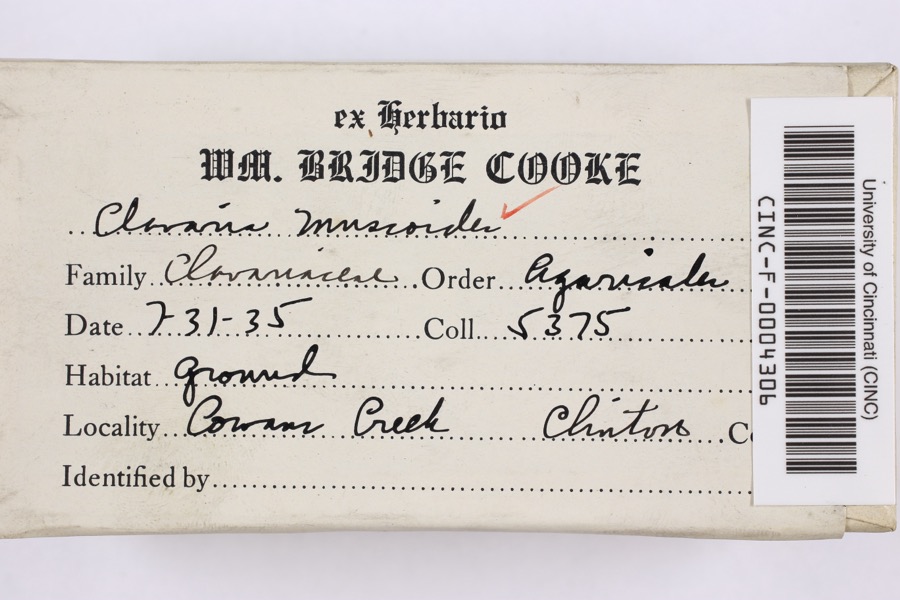 ex Herbario
WM. BRIDGE COOKE
Clavaria muscoides
Family Clavariaceae Order Agaricales
Date 7-31-35 Coll. 5375
Habitat ground
Locality Cowans Creek Clinton Co
Identified by
CINC-F-0004306
University of Cincinnati (CINC)